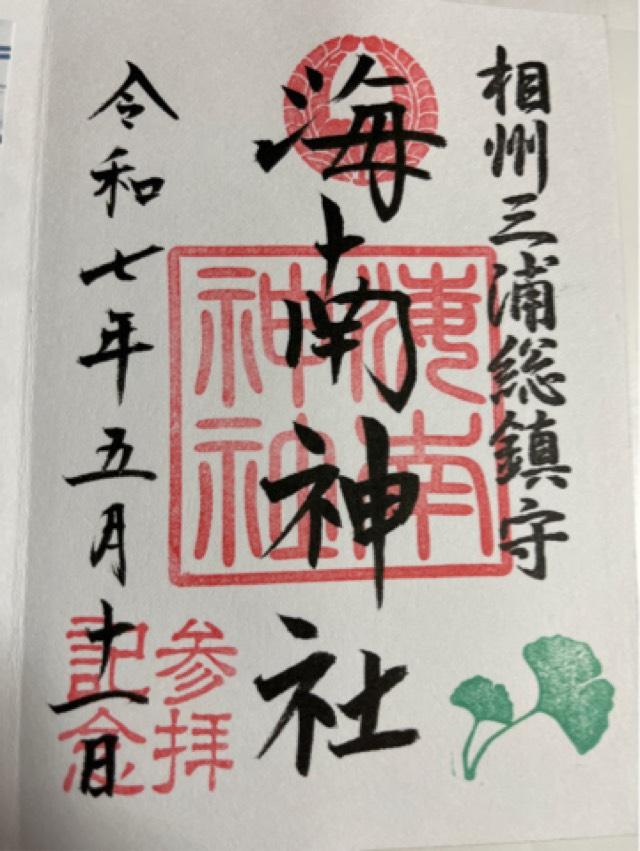 相州三浦総鎮守
海南神社
海南神社
令和七年五月十一日
参拝
記念